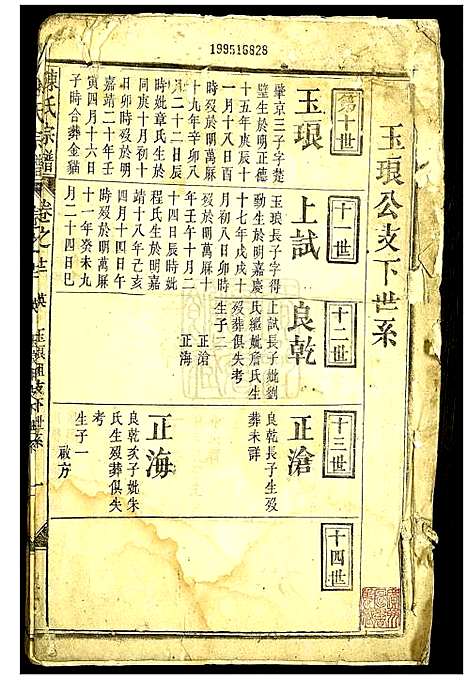 199516828
玉琅公支下世系
第十世
玉琅
肇京三子字楚
璧生於明正德
十五年庚辰十
一月十八日酉
時歿於明萬厤
十九年辛卯八
月二十二日辰
時妣章氏生於
同庚十月初十
日卯時歿於明
嘉靖二十年壬
寅四月十六日
子時合葬金貓
十一世
上試
玉琅長子字得
勳生於明嘉慶
十七年戊戌十
月初八日卯時
歿於明萬厤十
年壬午十月二
十四日辰時妣
程氏生於明嘉
靖十八年乙亥
四月十四日午
時歿於明萬厤
十一年癸未九
月二十四日巳
十二世
良乾
上試長子妣劉
氏繼妣詹氏生
歿葬俱失考
生子二
正滄
正海
十三世
正滄
良乾長子生歿
葬未詳
正海
良乾次子妣朱
氏生歿葬俱失
考
生子一
啟方
十四世
陳氏宗譜
卷之
玉琅公支下世系
一